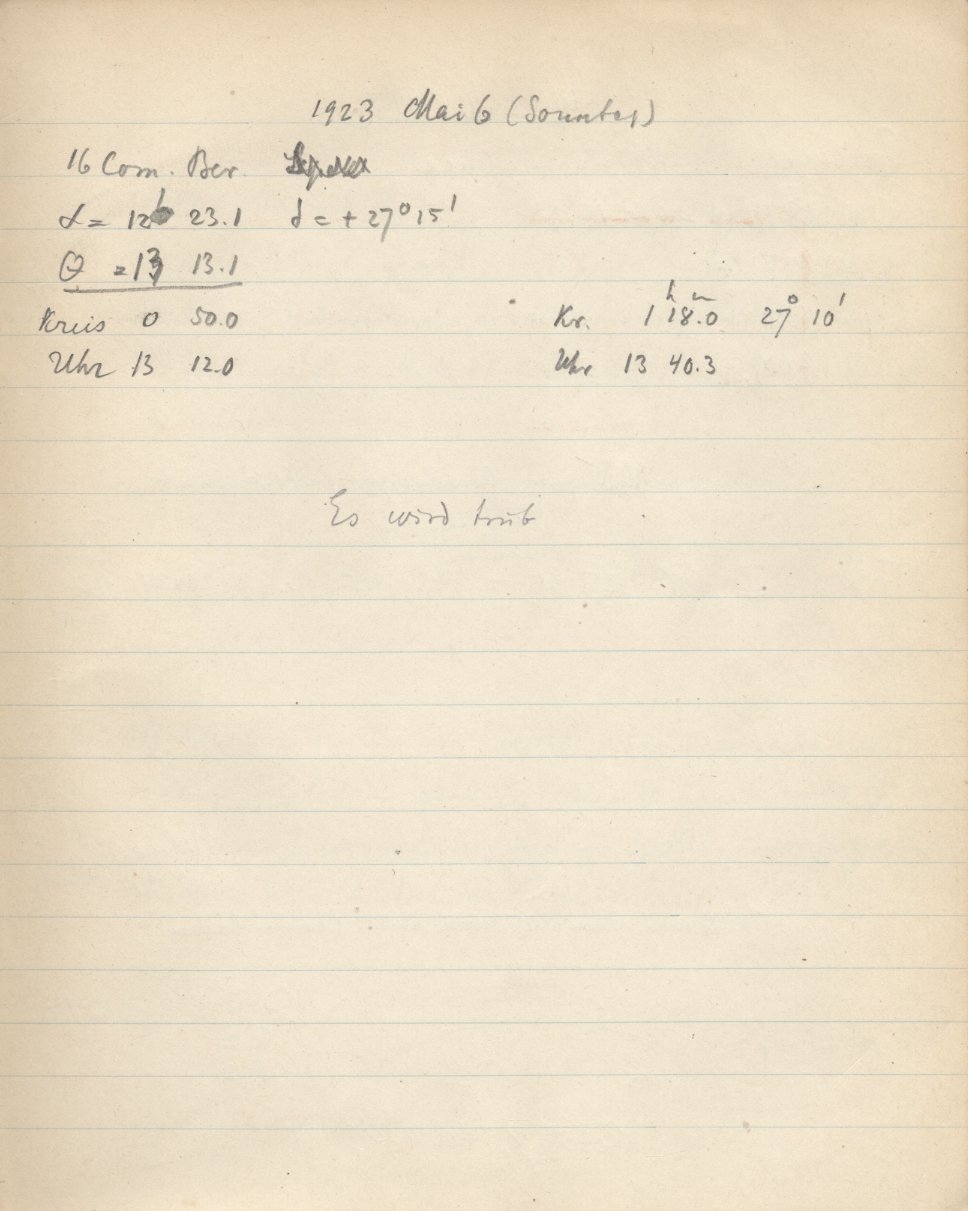 1923 Mai 6 (Sonntag)
16 Com. Ber.
α = 12h 23.1 δ = + 27° 15'
θ = 13 13.1
Kreis 0 50.0
Uhr 13 12.0
Kr. 1h 18.0m 27° 10'
Uhr 13 40.3
Es wird trüb